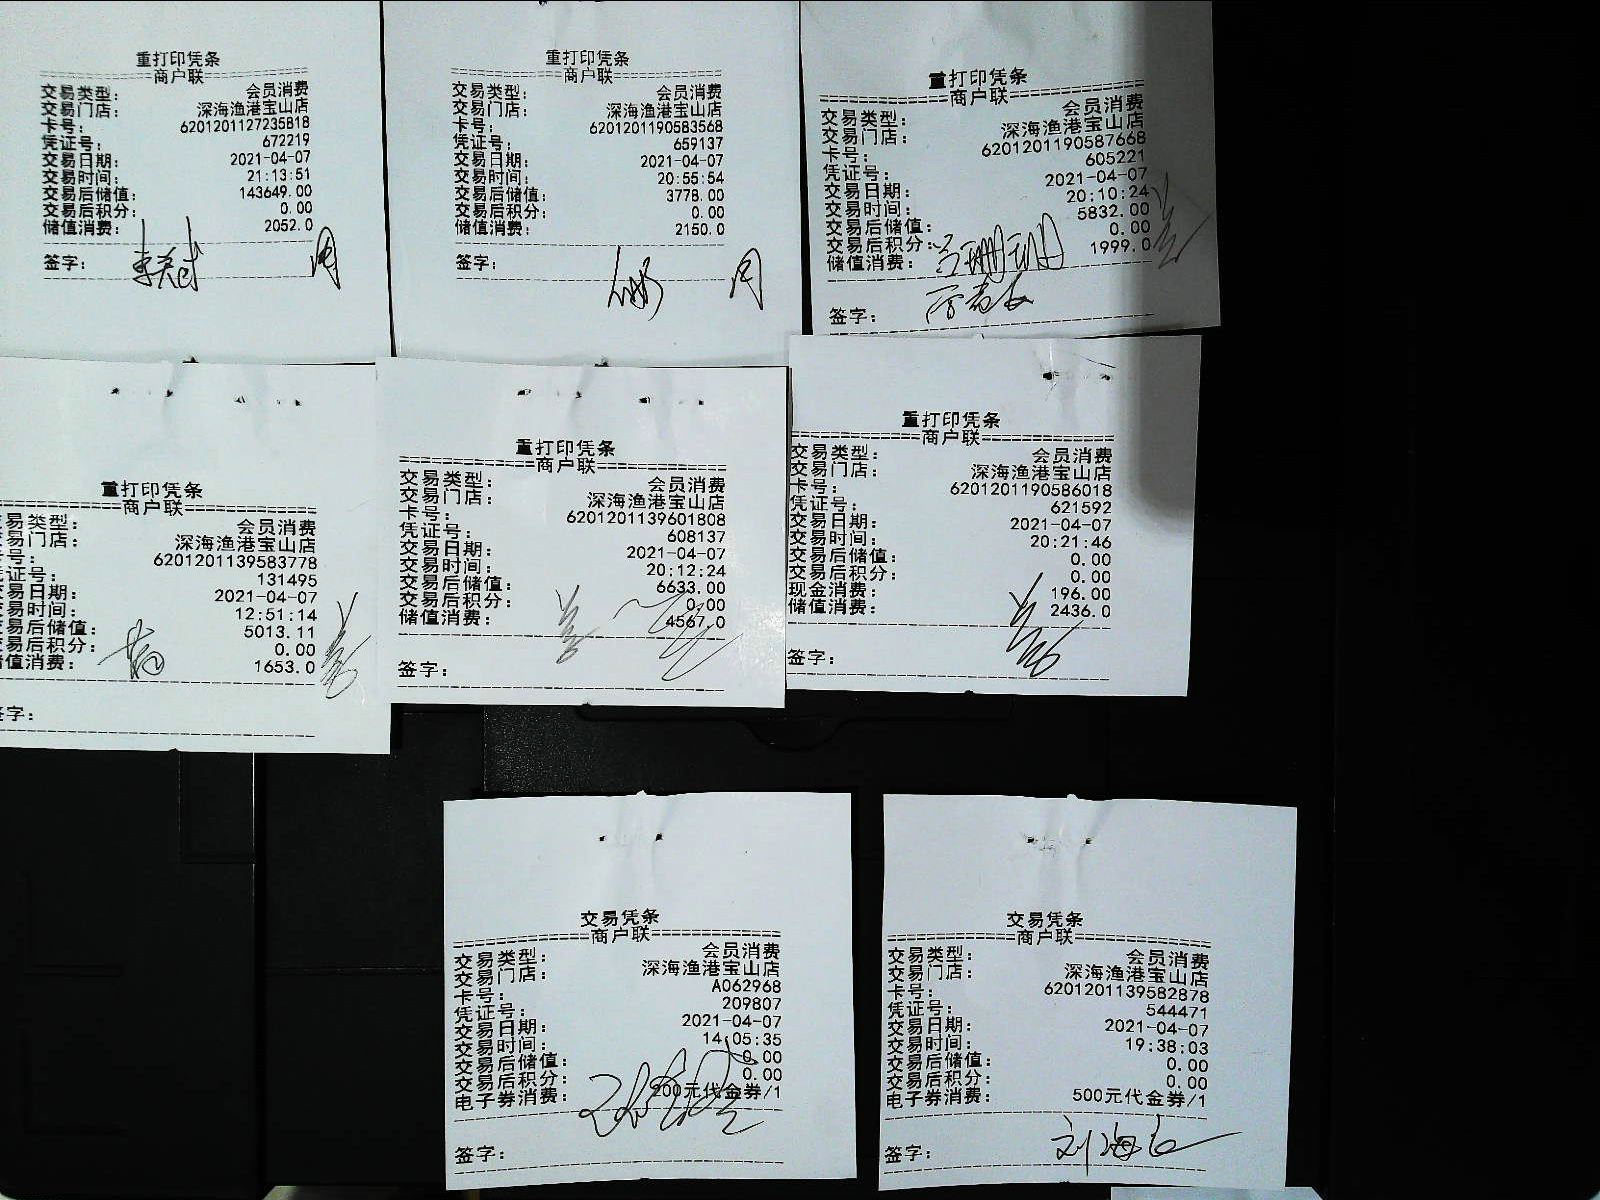 重打印凭条
商户联
交易类型： 会员消费
交易门店： 深海渔港宝山店
卡号： 6201201127235818
凭证号： 672219
交易日期： 2021-04-07
交易时间： 21:13:51
交易后储值： 143649.00
交易后积分： 0.00
储值消费： 2052.0
签字：
重打印凭条
商户联
交易类型： 会员消费
交易门店： 深海渔港宝山店
卡号： 6201201190583568
凭证号： 659137
交易日期： 2021-04-07
交易时间： 20:55:54
交易后储值： 3778.00
交易后积分： 0.00
储值消费： 2150.0
签字：
重打印凭条
商户联
交易类型： 会员消费
交易门店： 深海渔港宝山店
卡号： 6201201190587668
凭证号： 605221
交易日期： 2021-04-07
交易时间： 20:10:24
交易后储值： 5832.00
交易后积分： 0.00
储值消费： 1999.0
签字：
重打印凭条
商户联
易类型： 会员消费
易门店： 深海渔港宝山店
号： 6201201139583778
证号： 131495
易日期： 2021-04-07
易时间： 12:51:14
易后储值： 5013.11
易后积分： 0.00
值消费： 1653.0
签字：
重打印凭条
商户联
交易类型： 会员消费
交易门店： 深海渔港宝山店
卡号： 6201201139601808
凭证号： 608137
交易日期： 2021-04-07
交易时间： 20:12:24
交易后储值： 6633.00
交易后积分： 0.00
储值消费： 4567.0
签字：
重打印凭条
商户联
交易类型： 会员消费
交易门店： 深海渔港宝山店
卡号： 6201201190586018
凭证号： 621592
交易日期： 2021-04-07
交易时间： 20:21:46
交易后储值： 0.00
交易后积分： 0.00
现金消费： 196.00
储值消费： 2436.0
签字：
交易凭条
商户联
交易类型： 会员消费
交易门店： 深海渔港宝山店
卡号： A062968
凭证号： 209807
交易日期： 2021-04-07
交易时间： 14:05:35
交易后储值： 0.00
交易后积分： 0.00
电子券消费： 200元代金券/1
签字：
交易凭条
商户联
交易类型： 会员消费
交易门店： 深海渔港宝山店
卡号： 6201201139582878
凭证号： 544471
交易日期： 2021-04-07
交易时间： 19:38:03
交易后储值： 0.00
交易后积分： 0.00
电子券消费： 500元代金券/1
签字：